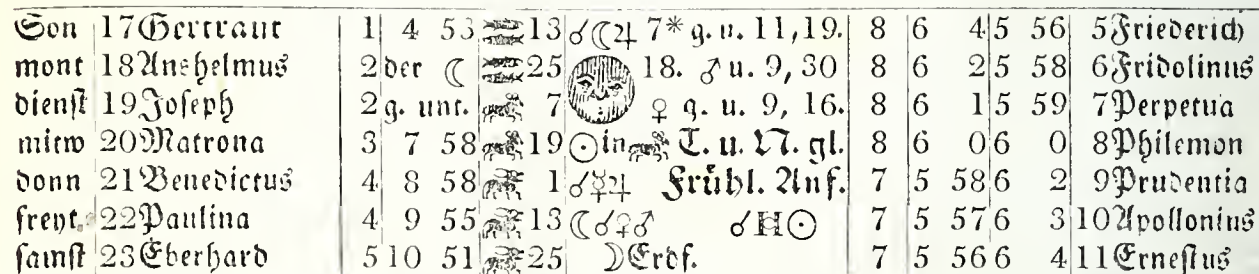 Son 17 Gertraut 1 4 53 ♓ 13 ☌☾♃ 7* g. u. 11,19. 8 6 4 5 56 5 Friederich
mont 18 Anshelmus 2 der ☾ ♓ 25 18. ♂ u. 9, 30 8 6 2 5 58 6 Fridolinus
dienst 19 Joseph 2 g. unt. ♈ 7 ♀ g. u. 9, 16. 8 6 1 5 59 7 Perpetua
mitw 20 Matrona 3 7 58 ♈ 19 ☉ in ♈ T. u. N. gl. 8 6 0 6 0 8 Philemon
donn 21 Benedictus 4 8 58 ♉ 1 ☌☿♃ Frühl. Anf. 7 5 58 6 2 9 Prudentia
freyt. 22 Paulina 4 9 55 ♉ 13 ☾☌♀♂ ☌♅☉ 7 5 57 6 3 10 Apollonius
samst 23 Eberhard 5 10 51 ♉ 25 ☽ Erdf. 7 5 56 6 4 11 Ernestus